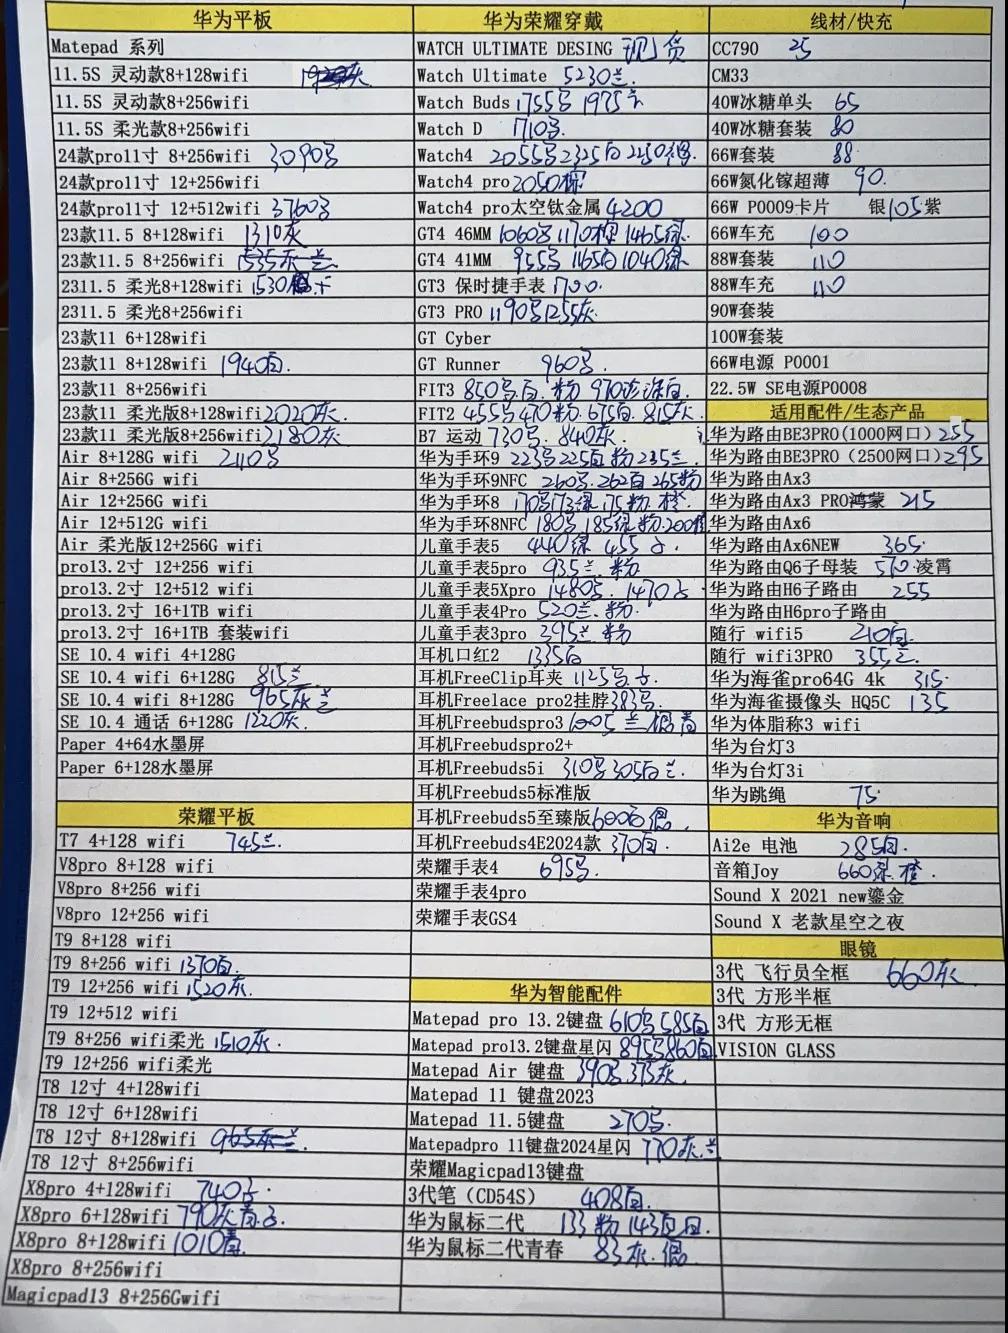 华为平板
Matepad 系列
11.5S 灵动款8+128wifi
11.5S 灵动款8+256wifi
11.5S 柔光款8+256wifi
24款pro11寸 8+256wifi 3090
24款pro11寸 12+256wifi
24款pro11寸 12+512wifi 3760
23款11.5 8+128wifi 1310灰
23款11.5 8+256wifi 1535灰
2311.5 柔光8+128wifi 1530
2311.5 柔光8+256wifi
23款11 6+128wifi
23款11 8+128wifi 1940
23款11 8+256wifi
23款11 柔光版8+128wifi 2020灰.
23款11 柔光版8+256wifi 2180灰
Air 8+128G wifi 2110
Air 8+256G wifi
Air 12+256G wifi
Air 12+512G wifi
Air 柔光版12+256G wifi
pro13.2寸 12+256 wifi
pro13.2寸 12+512 wifi
pro13.2寸 16+1TB wifi
pro13.2寸 16+1TB 套装wifi
SE 10.4 wifi 4+128G
SE 10.4 wifi 6+128G 815兰
SE 10.4 wifi 8+128G 965灰兰
SE 10.4 通话 6+128G 1220灰.
Paper 4+64水墨屏
Paper 6+128水墨屏
荣耀平板
T7 4+128 wifi 745兰.
V8pro 8+128 wifi
V8pro 8+256 wifi
V8pro 12+256 wifi
T9 8+128 wifi
T9 8+256 wifi 1370
T9 12+256 wifi 1520灰.
T9 12+512 wifi
T9 8+256 wifi柔光 1510灰.
T9 12+256 wifi柔光
T8 12寸 4+128wifi
T8 12寸 6+128wifi
T8 12寸 8+128wifi 965灰
T8 12寸 8+256wifi
X8pro 4+128wifi 740
X8pro 6+128wifi 790灰青
X8pro 8+128wifi 1010青
X8pro 8+256wifi
Magicpad13 8+256Gwifi
华为荣耀穿戴
WATCH ULTIMATE DESING 现货
Watch Ultimate 5230兰.
Watch Buds 1755 1975
Watch D 1710
Watch4 2055 2325白 2250
Watch4 pro 2050棕
Watch4 pro太空钛金属 4200
GT4 46MM 1060 1170棕 1465绿.
GT4 41MM 955 1165白 1040绿
GT3 保时捷手表 1700.
GT3 PRO 1190 1255灰.
GT Cyber
GT Runner 960
FIT3 850 白. 粉 970
FIT2 455 470粉. 675白. 815灰.
B7 运动 730 840灰.
华为手环9 223 225白 粉 235兰.
华为手环9NFC 260 262白 265粉
华为手环8 170 173绿 175粉. 橙.
华为手环8NFC 180 185绿 粉. 200橙
儿童手表5 440绿 455
儿童手表5pro 935兰. 粉
儿童手表5Xpro 1480 1470
儿童手表4Pro 520兰. 粉.
儿童手表3pro 395兰 粉
耳机口红2 1335白
耳机FreeClip耳夹 1125
耳机Freelace pro2挂脖 383
耳机Freebudspro3 1005 兰 银 青
耳机Freebudspro2+
耳机Freebuds5i 310 305白 兰.
耳机Freebuds5标准版
耳机Freebuds5至臻版 600
耳机Freebuds4E2024款 370白.
荣耀手表4 695
荣耀手表4pro
荣耀手表GS4
华为智能配件
Matepad pro 13.2键盘 610 585白
Matepad pro13.2键盘星闪 895 860白
Matepad Air 键盘 390 375灰.
Matepad 11 键盘2023
Matepad 11.5键盘 270
Matepadpro 11键盘2024星闪 770灰.兰
荣耀Magicpad13键盘
3代笔（CD54S） 408白.
华为鼠标二代 133 粉 143白
华为鼠标二代青春 83灰.
线材/快充
CC790 25
CM33
40W冰糖单头 65
40W冰糖套装 80
66W套装 88
66W氮化镓超薄 90.
66W P0009卡片 银105紫
66W车充 100
88W套装 110
88W车充 110
90W套装
100W套装
66W电源 P0001
22.5W SE电源P0008
适用配件/生态产品
华为路由BE3PRO(1000网口) 255
华为路由BE3PRO（2500网口) 295
华为路由Ax3
华为路由Ax3 PRO鸿蒙 215
华为路由Ax6
华为路由Ax6NEW 365
华为路由Q6子母装 570 凌霄
华为路由H6子路由 255
华为路由H6pro子路由
随行 wifi5 210白.
随行 wifi3PRO 355
华为海雀pro64G 4k 315
华为海雀摄像头 HQ5C 135
华为体脂称3 wifi
华为台灯3
华为台灯3i
华为跳绳 75
华为音响
Ai2e 电池 285白.
音箱Joy 660绿. 橙.
Sound X 2021 new鎏金
Sound X 老款星空之夜
眼镜
3代 飞行员全框 660灰
3代 方形半框
3代 方形无框
VISION GLASS